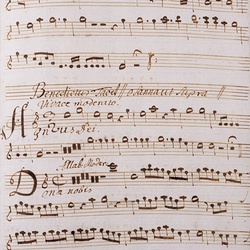 Benedictus Tacet // Osanna ut Supra //
Vivace moderato.
Agnus Dei.
Allab: Moder:
Dona nobis